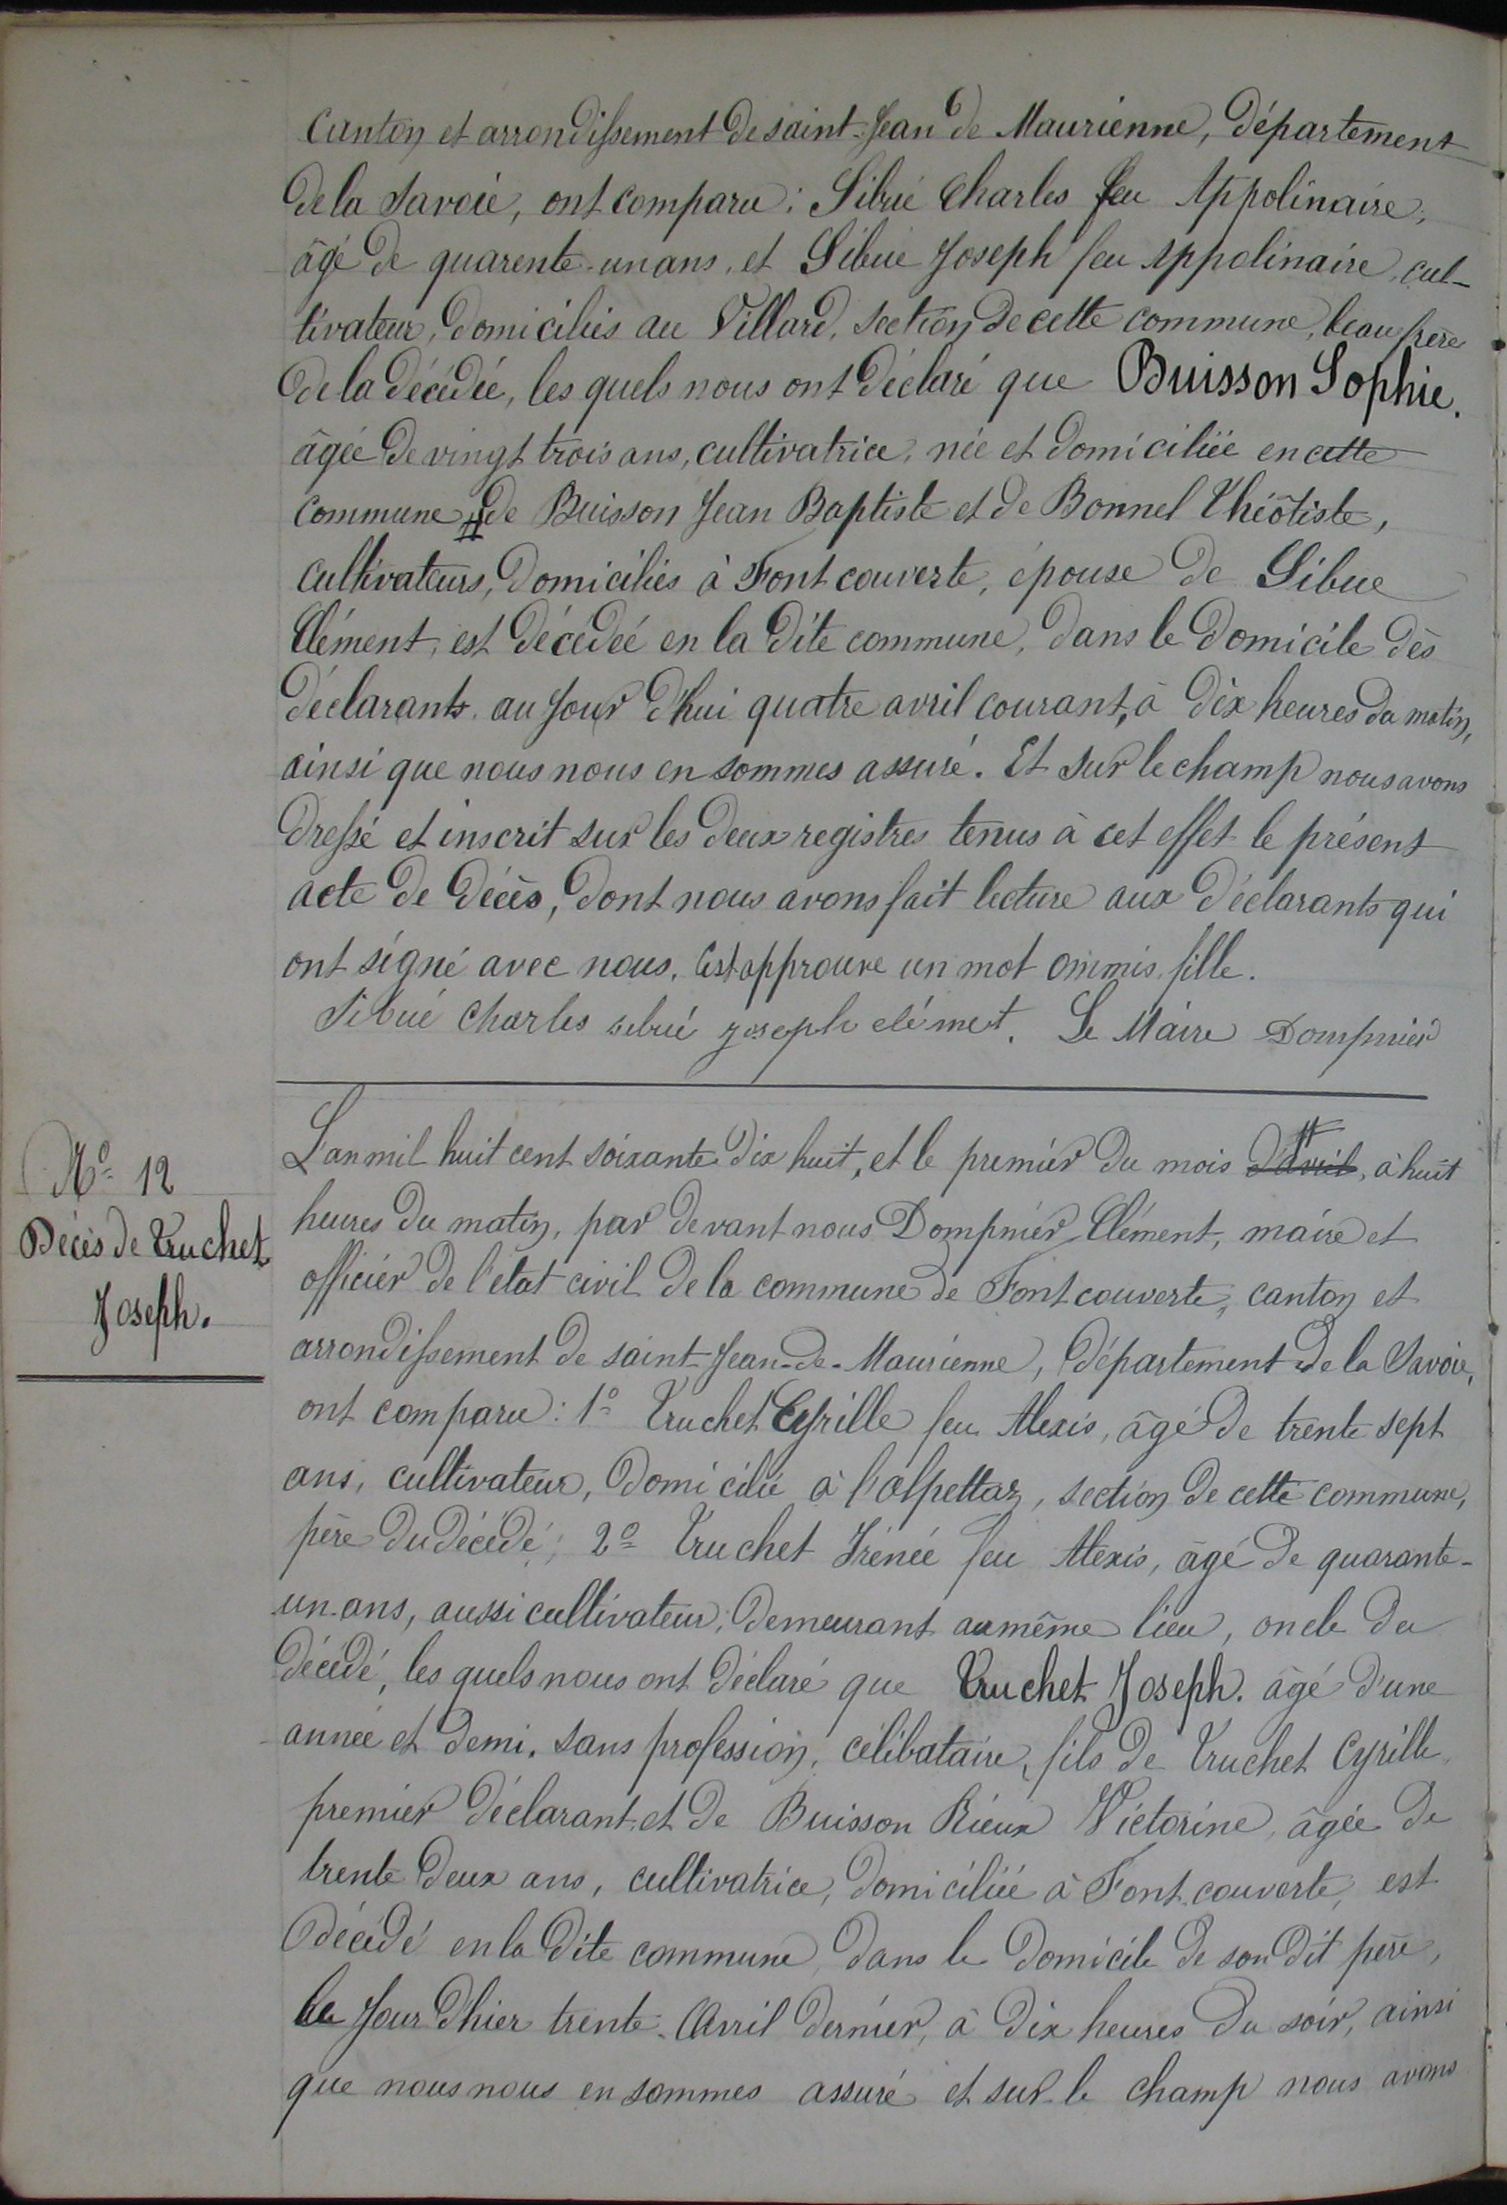 Canton et arrondissement de saint-Jean de Maurienne, département
de la Savoie, ont comparu : Sibué Charles feu Appolinaire,
âgé de quarente-un ans, et Sibué Joseph feu Appolinaire, cul-
tivateur, domiciliés au Villard, section de cette commune, beau frère
de la décédée, les quels nous ont déclaré que Buisson Sophie,
âgée de vingt trois ans, cultivatrice, née et domiciliée en cette
commune # de Buisson Jean Baptiste et de Bonnel Théotiste,
cultivateurs, domiciliés à Font couverte, épouse de Sibue
Clément, est décédeé en la dite commune, dans le domicile dès
déclarants, au jour d'hui quatre avril courant, à dix heures du matin,
ainsi que nous nous en sommes assuré. Et sur le champ nous avons
dressé et inscrit sur les deux registres tenus à cet effet le présent
acte de décès, dont nous avons fait lecture aux déclarants qui
ont signé avec nous. Est approuve un mot ommis fille.
Sibué Charles sibué joseph clémet. Le Maire Dompnier
L'an mil huit cent soixante dix huit, et le premier du mois d'avril #, à huit
N° 12
heures du matin, par devant nous Dompnier Clément, maire et
Décès de Truchet
officier de l'état civil de la commune de Font couverte, canton et
Joseph.
arrondissement de saint-Jean-de-Maurienne, département de la Savoie,
ont comparu : 1° Truchet Cyrille feu Alexis, âgé de trente sept
ans, cultivateur, domicilié à l'alpettaz, section de cette commune,
père du décédé; 2° Truchet Irénée feu Alexis, âgé de quarante-
un ans, aussi cultivateur, demeurant au même lieu, oncle du
décédé, les quels nous ont déclaré que Truchet Joseph. âgé d'une
année et demi, sans profession, célibataire, fils de Truchet Cyrille
premier déclarant et de Buisson Rieux Victorine, âgée de
trente deux ans, cultivatrice, domiciliée à Font couverte, est
décédé en la dite commune, dans le domicile de son dit père,
le jour d'hier trente Avril dernier, à dix heures du soir, ainsi
que nous nous en sommes assuré et sur le champ nous avons